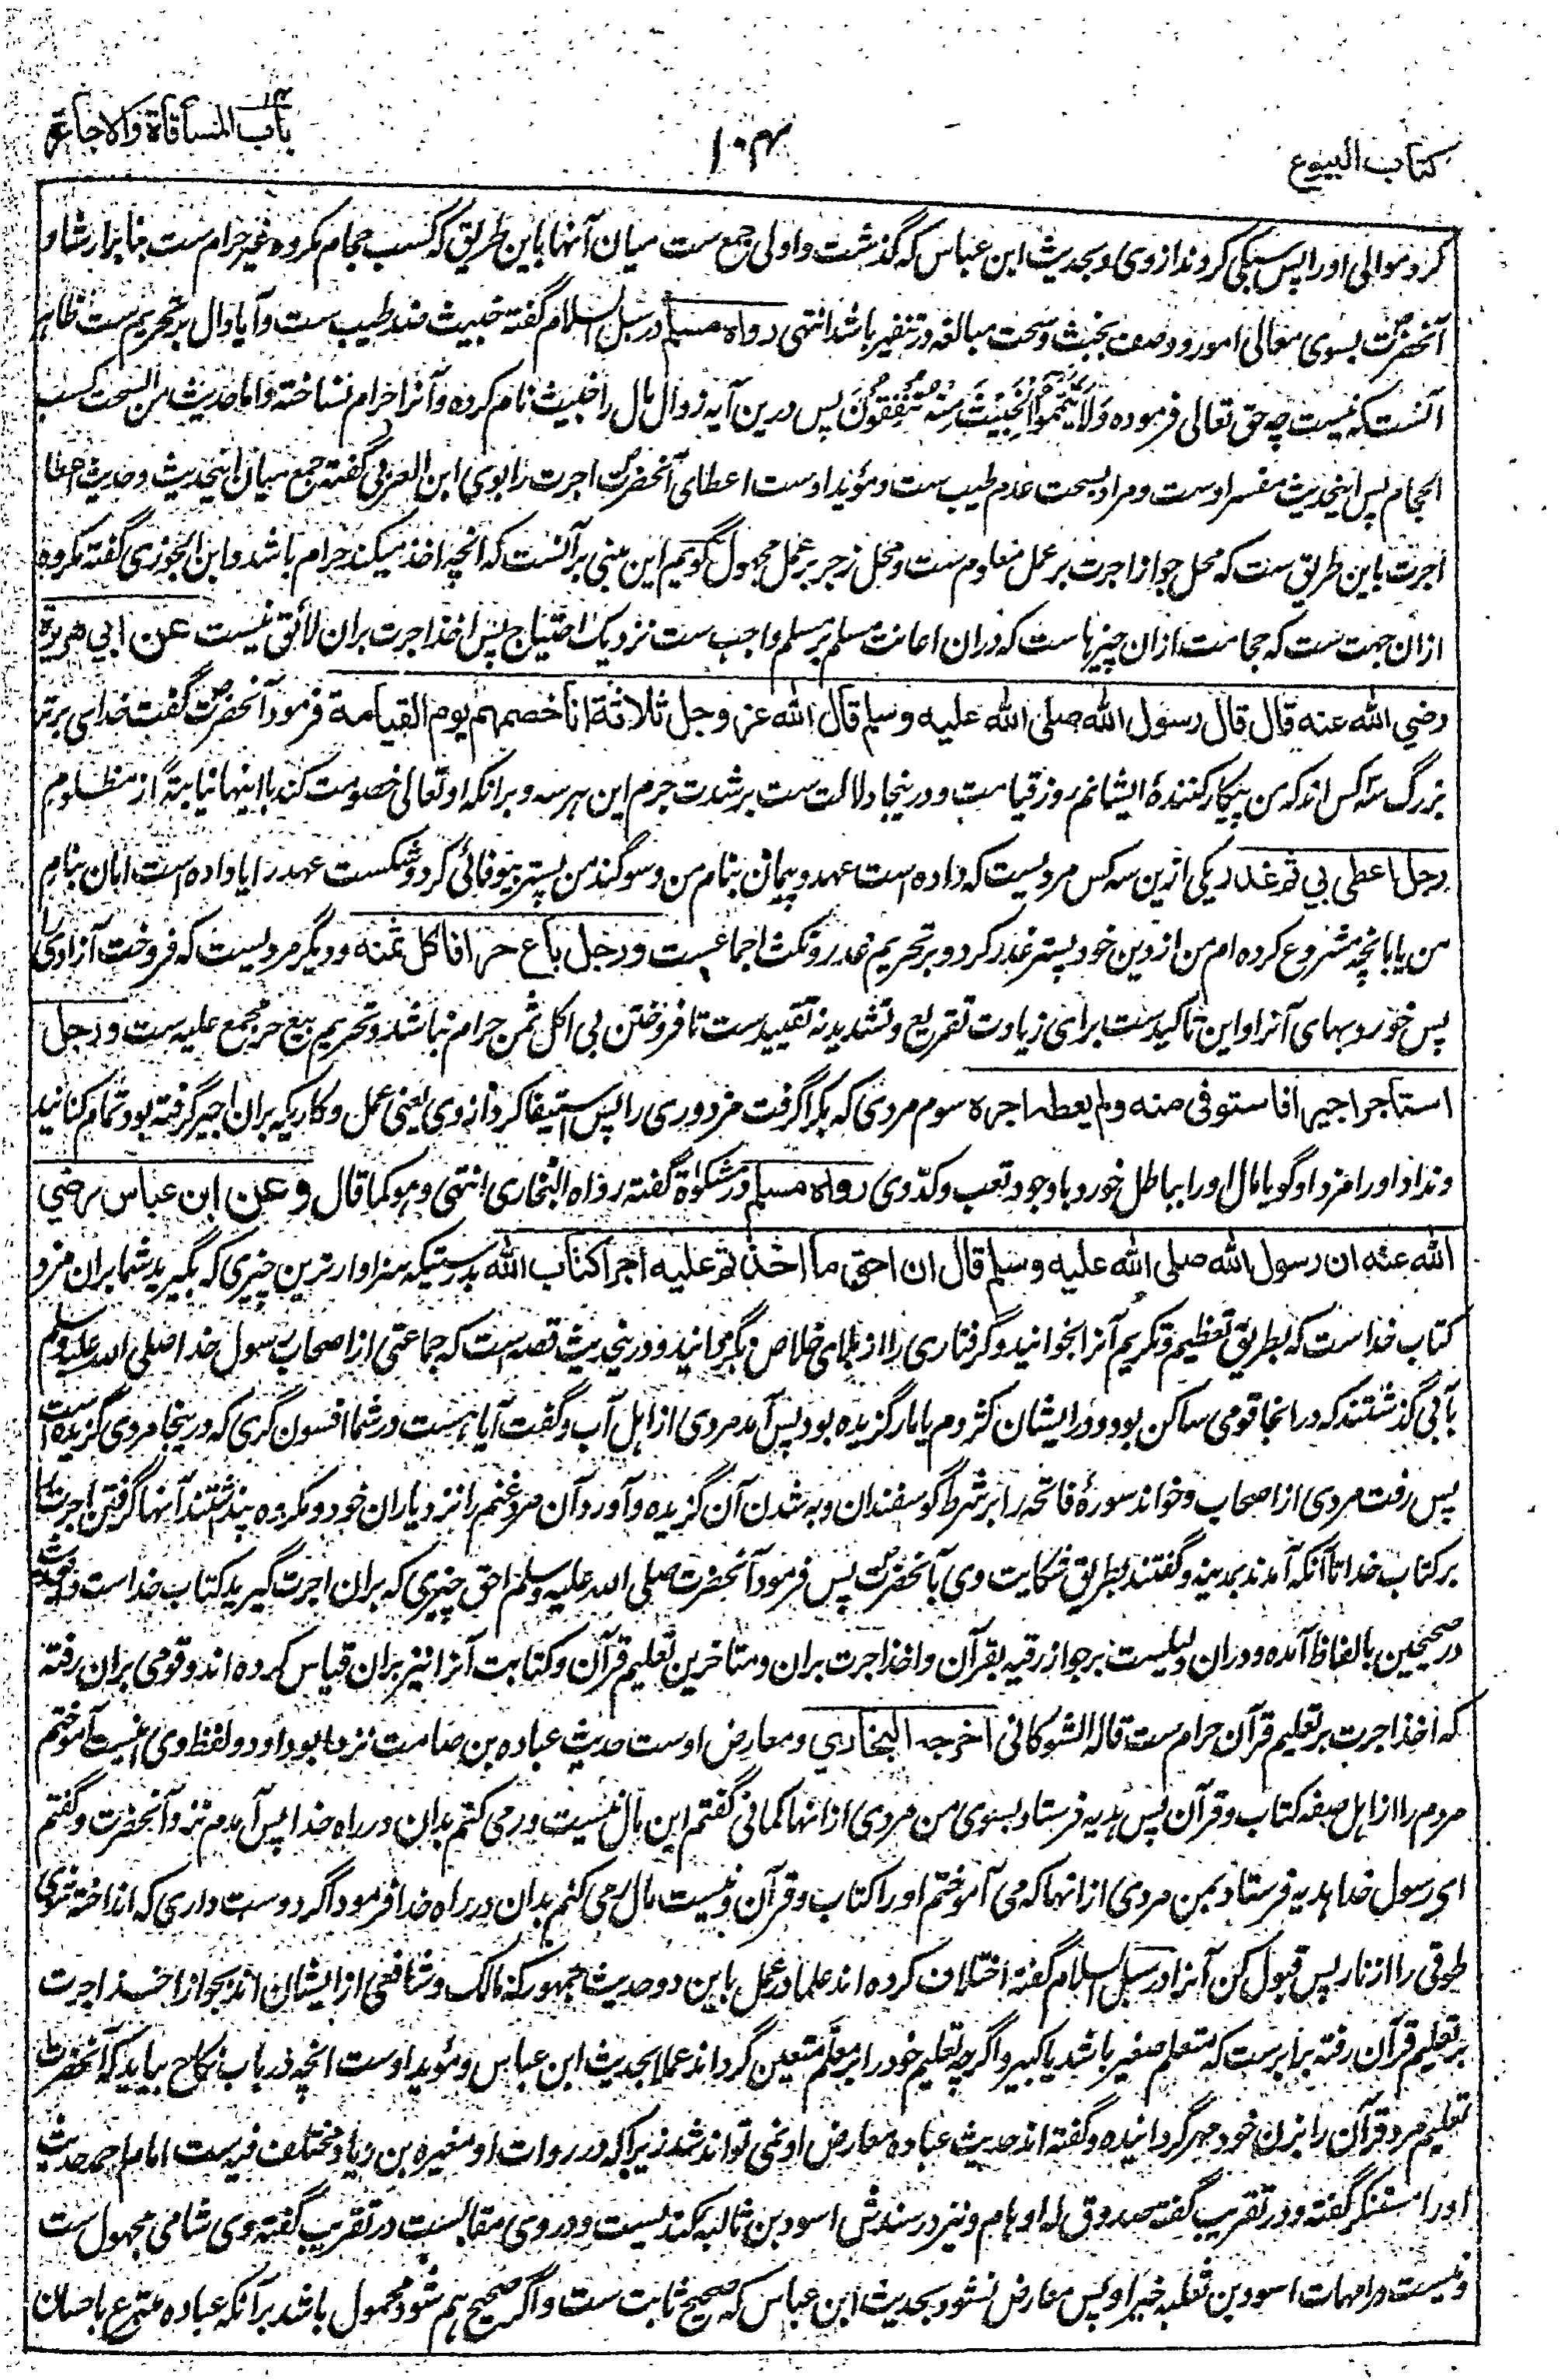 کتاب البیوع
۱۰۴
باب المساقاة والاجارة
کرد موالی او را پس سبکی کردند از وی و بحدیث ابن عباس که گذشت و اولی جمع ست میان آنها باین طریق که کسب حجام مکروه غیر حرام ست بنا بر ارشاد
آنحضرت بسوی معالی امور و وصف بخبث و سحت مبالغه در تنفیر باشد انتهی رواه مسلم در سبل السلام گفته خبیث ضد طیب ست و آیا دال بر تحریم ست ظاهر
آنست که نیست چه حق تعالی فرموده وَلَا تَيَمَّمُوا الْخَبِيثَ مِنْهُ تُنْفِقُونَ پس درین آیه رذال مال را خبیث نام کرده و آنرا حرام نساخته و اما حدیث من السحت کسب
الحجام پس اینحدیث مفسر اوست و مراد بسحت عدم طیب ست و مؤید اوست اعطای آنحضرت اجرت را بوی ابن العربی گفته جمع میان اینحدیث و حدیث اعطا
اجرت باین طریق ست که محل جواز اجرت بر عمل معلوم ست و محل زجر بر عمل مجهول گویم این مبنی بر آنست که انچه اخذ میکند حرام باشد و ابن الجوزی گفته مکروه
ازان جهت ست که حجامت ازان چیزهاست که دران اعانت مسلم بر مسلم واجب ست نزدیک احتیاج پس اخذ اجرت بران لائق نیست عن ابی هریرة
رضی الله عنه قال قال رسول الله صلی الله علیه وسلم قال الله عز وجل ثلاثة انا خصمهم یوم القیامة فرمود آنحضرت گفت خدای برتر
بزرگ سه کس اند که من پیکار کننده ایشانم روز قیامت و درینجا دلالت ست بر شدت جرم این هر سه و برانکه او تعالی خصومت کند با اینها نیابةً از مظلوم
رجل اعطی بی ثم غدر یکی ازین سه کس مردیست که داده است عهد و پیمان بنام من و سوگند من پستر بیوفائی کرد و شکست عهد را یا داده است امان بنام
من یا بانچه مشروع کرده ام من از دین خود پستر غدر کرد و بر تحریم غدر و نکث اجماعیست ورجل باع حرا فاکل ثمنه و دیگر مردیست که فروخت آزادی را
پس خورد بهای آنرا و این تاکید ست برای زیادت تقریع و تشدید نه تقیید ست تا فروختن بی اکل ثمن حرام نباشد و تحریم بیع حر مجمع علیه ست ورجل
استاجر اجیرا فاستوفی منه ولم یعطه اجره سوم مردی که بکرا گرفت مزدوری را پس استیفا کرد از وی یعنی عمل و کاریکه بران اجیر گرفته بود تمام کنانید
و نداد او را مزد او گویا مال او را بباطل خورد با وجود تعب و کد وی رواه مسلم در مشکوة گفته رواه البخاری انتهی و هو کما قال وعن ابن عباس رضی
الله عنه ان رسول الله صلی الله علیه وسلم قال ان احق ما اخذتم علیه اجرا کتاب الله بدرستیکه سزاوارترین چیزی که بگیرید شما بران مزد
کتاب خداست که بطریق تعظیم و تکریم آنرا بخوانید و گرفتاری را از بلای خلاص بگردانید و درینحدیث قصه است که جماعتی از اصحاب رسول خدا صلی الله علیه وسلم
بآبی گذشتند که درانجا قومی ساکن بود و در ایشان کژدم یا مار گزیده بود پس آمد مردی از اهل آب و گفت آیا هست در شما افسون گری که درینجا مردی گزیده است
پس رفت مردی از اصحاب و خواند سورهٔ فاتحه را بر شرط گوسفندان و به شدن آن گزیده و آورد آن مرد غنم را نزد یاران خود و مکروه پنداشتند آنها گرفتن اجرت را
بر کتاب خدا تا آنکه آمدند بمدینه و گفتند بطریق شکایت وی بآنحضرت پس فرمود آنحضرت صلی الله علیه وسلم احق چیزی که بران اجرت گیرید کتاب خداست و اینحدیث
در صحیحین بالفاظ آمده و دران دلیلست بر جواز رقیه بقرآن و اخذ اجرت بران و متاخرین تعلیم قرآن و کتابت آنرا نیز بران قیاس کرده اند و قومی بران رفته
که اخذ اجرت بر تعلیم قرآن حرام ست قاله الشوکانی اخرجه البخاری و معارض اوست حدیث عباده بن صامت نزد ابو داود و لفظ وی اینست آموختم
مردم را از اهل صفه کتاب و قرآن پس هدیه فرستاد بسوی من مردی ازانها کمانی گفتم این مال نیست و رمی کنم بدان در راه خدا پس آمدم نزد آنحضرت و گفتم
ای رسول خدا هدیه فرستاد بمن مردی ازانها که می آموختم او را کتاب و قرآن و نیست مال رمی کنم بدان در راه خدا فرمود اگر دوست داری که انداخته شوی
طوقی را از نار پس قبول کن آنرا در سبل السلام گفته اختلاف کرده اند علما در عمل باین دو حدیث جمهور که مالک و شافعی از ایشان اند بجواز اخذ اجرت
بر تعلیم قرآن رفته برابرست که متعلم صغیر باشد یا کبیر و اگرچه تعلیم خود را بر معلم متعین گرداند عملا بحدیث ابن عباس و مؤید اوست انچه در باب نکاح بیاید که آنحضرت
تعلیم مرد قرآن را بزن خود مهر گردانیده و گفته اند حدیث عباده معارض او نمی تواند شد زیراکه در روات او مغیره بن زیاد مختلف فیه ست امام احمد حدیث
او را مستنکر گفته و در تقریب گفته صدوق له اوهام و نیز در سندش اسود بن ثعلبه کندیست و در وی مقالست در تقریب گفته وی شامی مجهول ست
و نیست در امهات اسود بن ثعلبه خبر او پس معارض نشود بحدیث ابن عباس که صحیح ثابت ست و اگر صحیح هم شود محمول باشد بر آنکه عباده متبرع باحسان